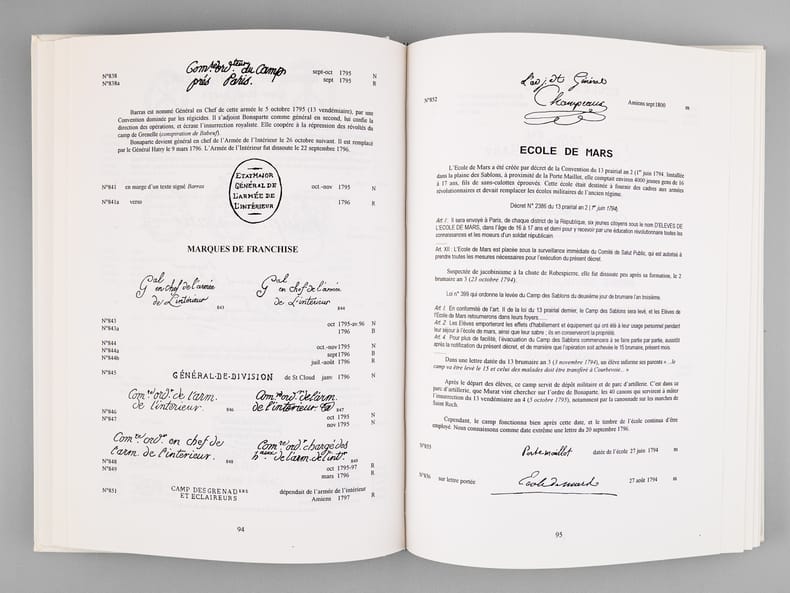 N°838 Com.re ord.teur du Camp sept-oct 1795 N
N°838a près Paris. sept 1795 R
Barras est nommé Général en Chef de cette armée le 5 octobre 1795 (13 vendémiaire), par une
Convention dominée par les régicides. Il s'adjoint Bonaparte comme général en second, lui confie la
direction des opérations, et écrase l'insurrection royaliste. Il coopère à la répression des révoltés du
camp de Grenelle (conspiration de Babeuf).
Bonaparte devient général en chef de l'Armée de l'Intérieur le 26 octobre suivant. Il est remplacé
par le Général Hatry le 9 mars 1796. L'Armée de l'Intérieur fut dissoute le 22 septembre 1796.
ETAT MAJOR
GÉNÉRAL DE
L'ARMÉE DE
L'INTÉRIEUR
N°841 en marge d'un texte signé Barras oct-nov 1795 N
N°841a verso 1796 R
MARQUES DE FRANCHISE
Gal en chef de l'armée de L'intérieur 843
Gal en chef de l'armée de L'intérieur 844
N°843 oct 1795-av.96 N
N°843a 1796 B
N°844 oct.-nov1795 N
N°844a sept1796 B
N°844b juil.-août 1796 R
N°845 GÉNÉRAL-DE-DIVISION de St Cloud janv 1796 N
Com.re ord.r de l'arm. de l'intérieur 846
Com.re ord.r de l'arm. de l'intérieur 847
N°846 oct 1795 N
N°847 nov 1795 N
Com.re ord.r en chef de l'arm. de l'intérieur. 848
Com.re ord.r chargé des de l'arm. de l'int. 849
N°848 oct 1795-97 R
N°849 mars 1796 R
N°851 CAMP DES GRENADERS ET ECLAIREURS dépendait de l'armée de l'intérieur
Amiens 1797 R
94
N°852 L'adj.dt Général
Champeaux Amiens sept1800 m
ECOLE DE MARS
L'Ecole de Mars a été créée par décret de la Convention du 13 prairial an 2 (1er juin 1794). Installée
dans la plaine des Sablons, à proximité de la Porte Maillot, elle comptait environ 4000 jeunes gens de 16
à 17 ans, fils de sans-culottes éprouvés. Cette école était destinée à fournir des cadres aux armées
révolutionnaires et devait remplacer les écoles militaires de l'ancien régime.
Décret N° 2386 du 13 prairial an 2 (1er juin 1794).
Art I : Il sera envoyé à Paris, de chaque district de la République, six jeunes citoyens sous le nom D'ELEVES DE
L'ECOLE DE MARS, dans l'âge de 16 à 17 ans et demi pour y recevoir par une éducation révolutionnaire toutes les
connaissances et les moeurs d'un soldat républicain.
Art. XII : L'Ecole de Mars est placée sous la surveillance immédiate du Comité de Salut Public, qui est autorisé à
prendre toutes les mesures nécessaires pour l'exécution du présent décret.
Suspectée de jacobinisme à la chute de Robespierre, elle fut dissoute peu après sa formation, le 2
brumaire an 3 (23 octobre 1794).
Loi n° 399 qui ordonne la levée du Camp des Sablons du deuxième jour de brumaire l'an troisième.
Art 1. En conformité de l'art. II de la loi du 13 prairial dernier, le Camp des Sablons sera levé, et les Elèves de
l'Ecole de Mars retourneront dans leurs foyers......
Art 2. Les Elèves emporteront les effets d'habillement et équipement qui ont été à leur usage personnel pendant
leur séjour à l'école de mars, ainsi que leur sabre ; ils en conserveront la propriété.
Art. 4. Pour plus de facilité, l'évacuation du Camp des Sablons commencera à se faire partie par partie, aussitôt
après la notification du présent décret, et de manière que l'opération soit achevée le 15 brumaire, présent mois...
Dans une lettre datée du 13 brumaire an 3 (3 novembre 1794), un élève informe ses parents «...le
camp va être levé le 15 et celui des malades doit être transféré à Courbevoie...»
Après le départ des élèves, ce camp servit de dépôt militaire et de parc d'artillerie. C'est dans ce
parc d'artillerie, que Murat vint chercher sur l'ordre de Bonaparte, les 40 canons qui servirent à mâter
l'insurrection du 13 vendémiaire an 4 (5 octobre 1795), notamment par la canonnade sur les marches de
Saint Roch.
Cependant, le camp fonctionna bien après cette date, et le timbre de l'école continua d'être
employé. Nous connaissons comme date extrême une lettre du 20 septembre 1796.
N°855 Porte maillot datée de l'école 27 juin 1794 m
N°856 sur lettre portée Ecole de mars 27 août 1794 m
95